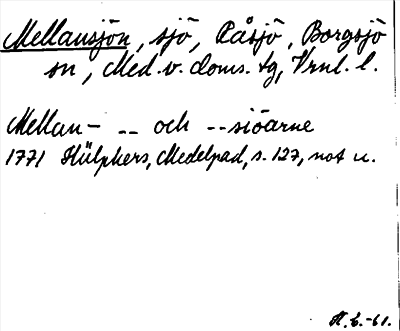 Mellansjön, sjö, Råsjö, Borgsjö
sn, Med. v. doms. tg, Vrnl. l.
Mellan- -- och --siöarne
1771 Hülphers, Medelpad, s. 127, not u.
H. G. -61.